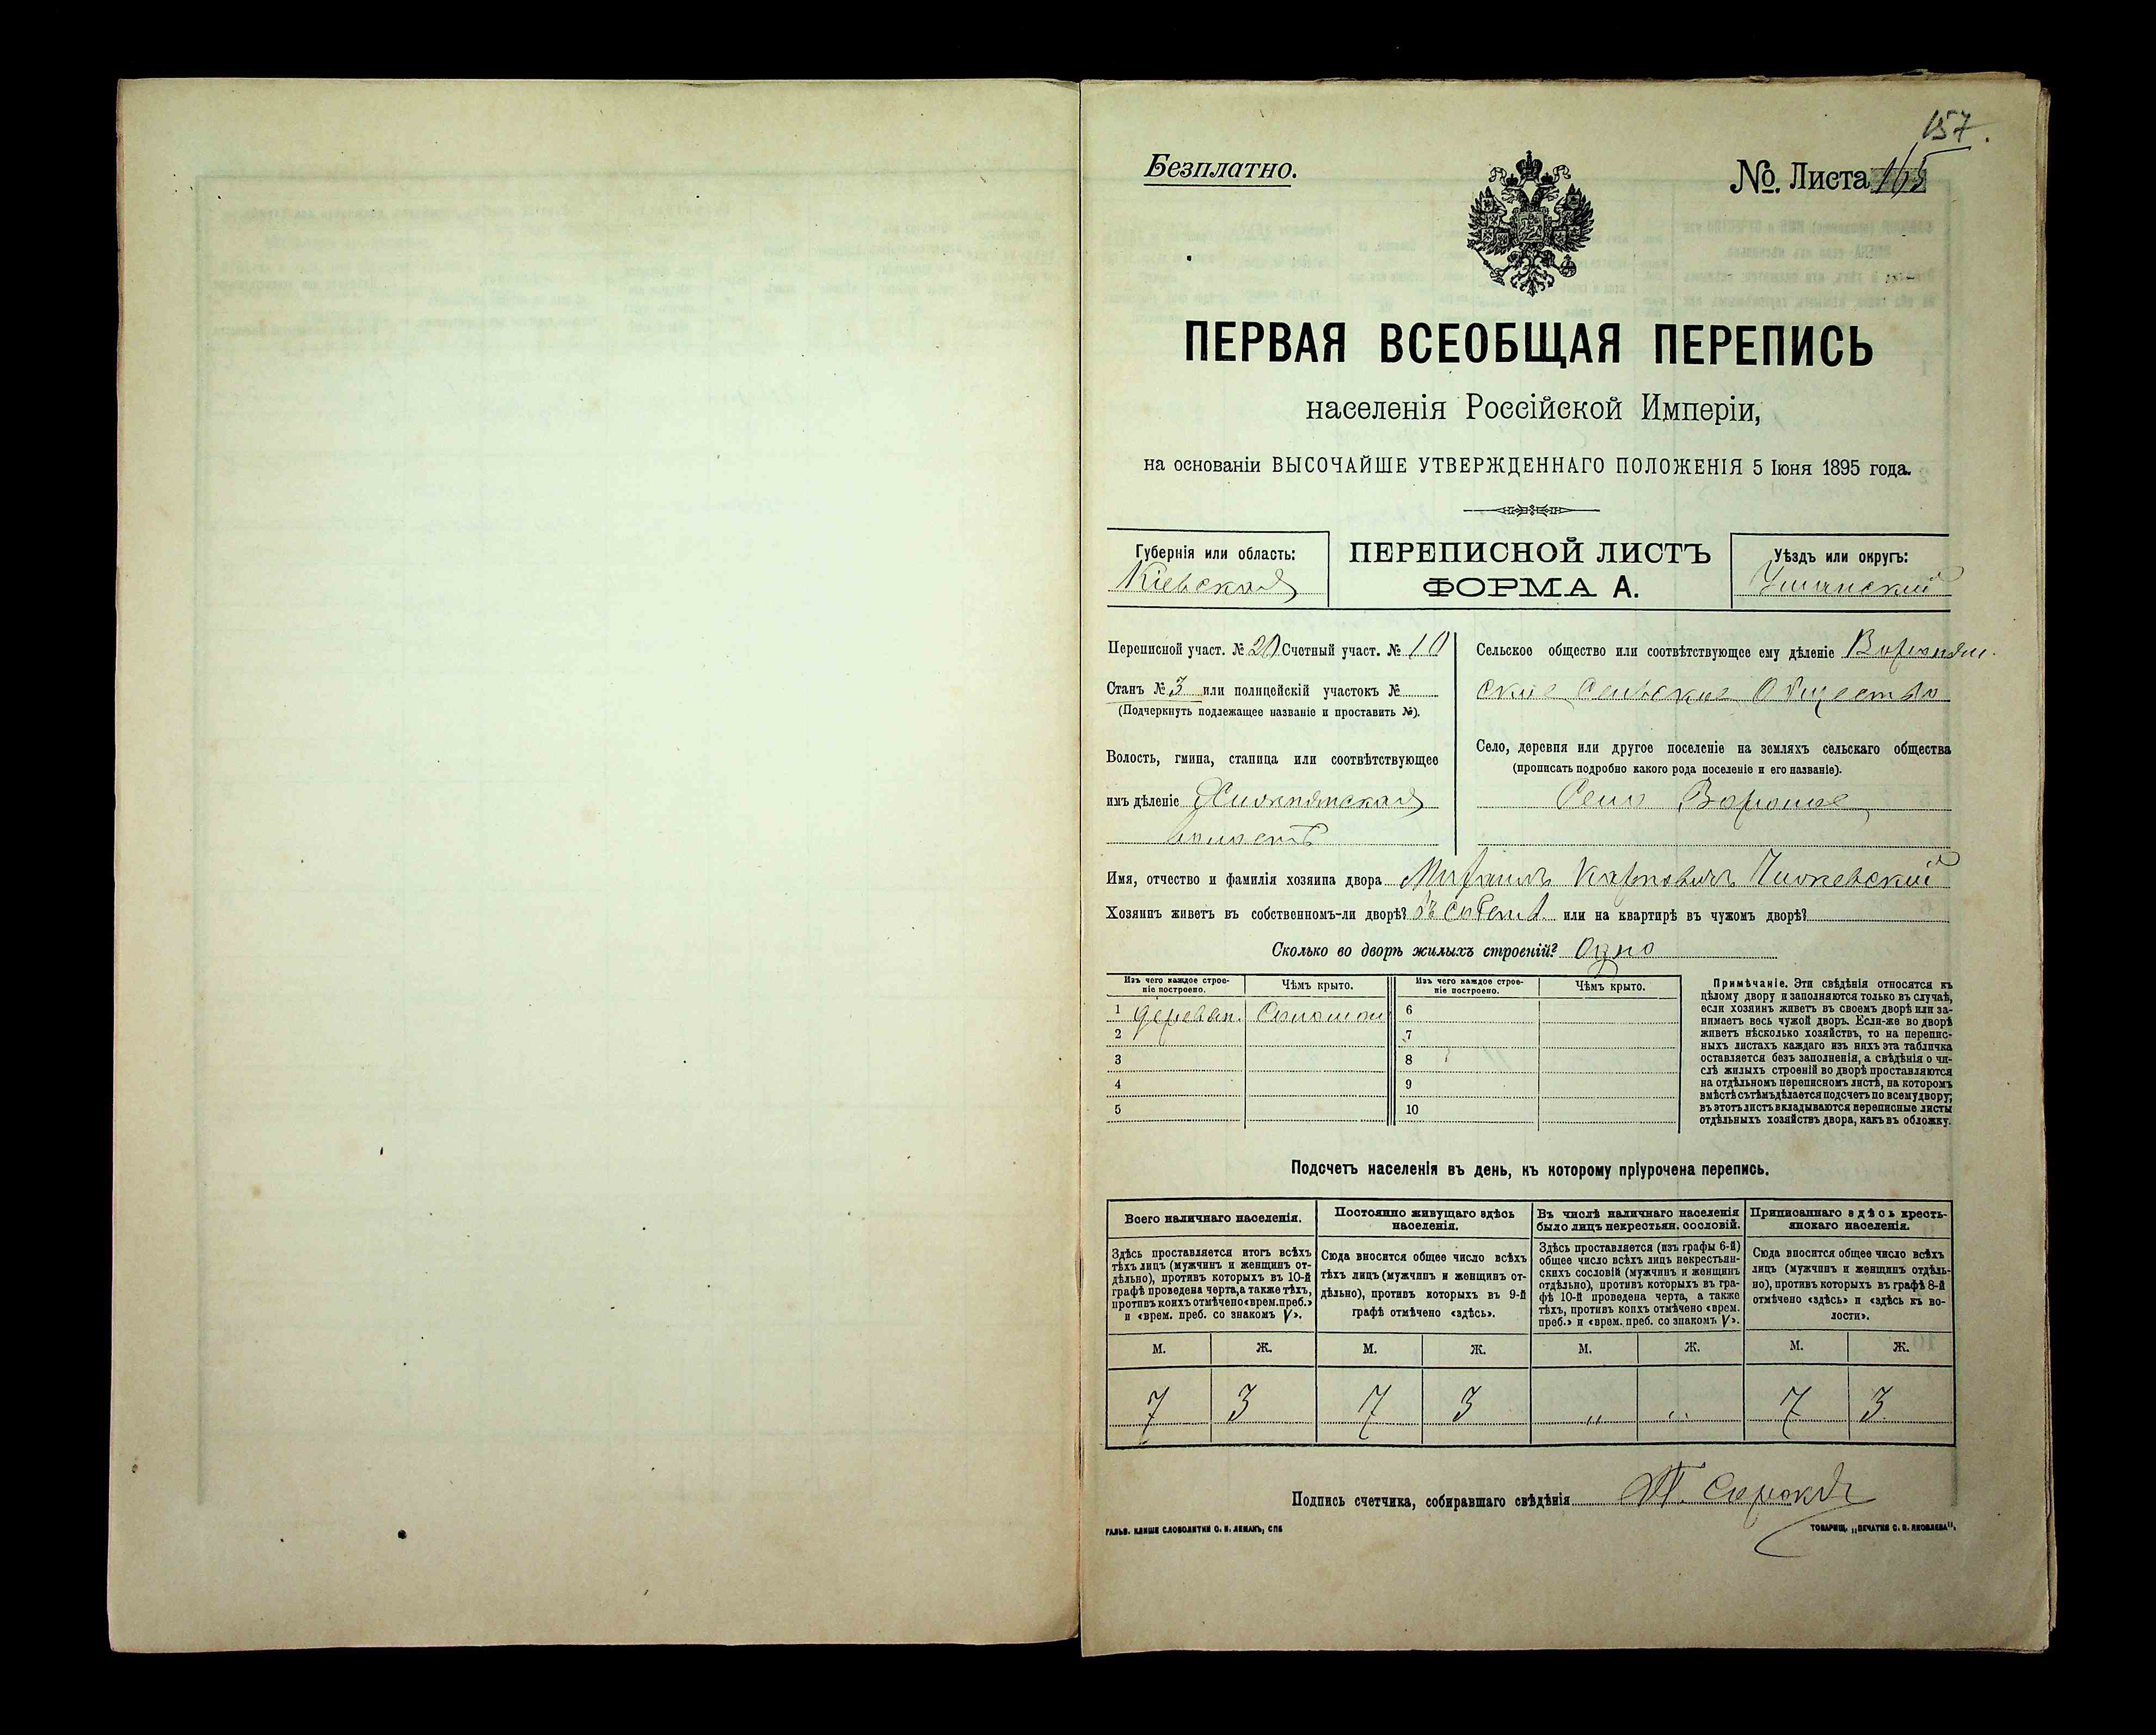 157.
Безплатно.
№. Листа 165
ПЕРВАЯ ВСЕОБЩАЯ ПЕРЕПИСЬ
населенія Россійской Имперіи,
на основаніи ВЫСОЧАЙШЕ УТВЕРЖДЕННАГО ПОЛОЖЕНІЯ 5 Іюня 1895 года.
Губернія или область:
Кіевская
ПЕРЕПИСНОЙ ЛИСТЪ
ФОРМА А.
Уѣздъ или округъ:
Уманский
Переписной участ. № 20 Счетный участ. № 10
Станъ № 3 или полицейскій участокъ №
(Подчеркнуть подлежащее названіе и проставить №).
Волость, гмина, станица или соотвѣтствующее
имъ дѣленіе
волость
Сельское общество или соотвѣтствующее ему дѣленіе
ское Сельское Общество
Село, деревня или другое поселеніе на земляхъ сельскаго общества
(прописать подробно какого рода поселеніе и его названіе).
Село
Имя, отчество и фамилія хозяина двора Карповичъ
Хозяинъ живетъ въ собственномъ-ли дворѣ? въ собств. или на квартирѣ въ чужомъ дворѣ?
Сколько во дворѣ жилыхъ строеній? Одно
Изъ чего каждое строе-
ніе построено.
Чѣмъ крыто.
Изъ чего каждое строе-
ніе построено.
Чѣмъ крыто.
1 деревян. Соломою 6
2 7
3 8
4 9
5 10
Примѣчаніе. Эти свѣдѣнія относятся къ
цѣлому двору и заполняются только въ случаѣ,
если хозяинъ живетъ въ своемъ дворѣ или за-
нимаетъ весь чужой дворъ. Если-же во дворѣ
живетъ нѣсколько хозяйствъ, то на перепис-
ныхъ листахъ каждаго изъ нихъ эта табличка
оставляется безъ заполненія, а свѣдѣнія о чи-
слѣ жилыхъ строеній во дворѣ проставляются
на отдѣльномъ переписномъ листѣ, на которомъ
вмѣстѣ съ тѣмъ дѣлается подсчетъ по всему двору;
въ этотъ листъ вкладываются переписные листы
отдѣльныхъ хозяйствъ двора, какъ въ обложку.
Подсчетъ населенія въ день, къ которому пріурочена перепись.
Всего наличнаго населенія.
Здѣсь проставляется итогъ всѣхъ
тѣхъ лицъ (мужчинъ и женщинъ от-
дѣльно), противъ которыхъ въ 10-й
графѣ проведена черта, а также тѣхъ,
противъ коихъ отмѣчено «врем. преб.»
и «врем. преб. со знакомъ V».
Постоянно живущаго здѣсь
населенія.
Сюда вносится общее число всѣхъ
тѣхъ лицъ (мужчинъ и женщинъ от-
дѣльно), противъ которыхъ въ 9-й
графѣ отмѣчено «здѣсь».
Въ числѣ наличнаго населенія
было лицъ некрестьян. сословій.
Здѣсь проставляется (изъ графы 6-й)
общее число всѣхъ лицъ некрестьян-
скихъ сословій (мужчинъ и женщинъ
отдѣльно), противъ которыхъ въ гра-
фѣ 10-й проведена черта, а также
тѣхъ, противъ коихъ отмѣчено «врем.
преб.» и «врем. преб. со знакомъ V».
Приписаннаго здѣсь кресть-
янскаго населенія.
Сюда вносится общее число всѣхъ
лицъ (мужчинъ и женщинъ отдѣль-
но), противъ которыхъ въ графѣ 8-й
отмѣчено «здѣсь» и «здѣсь къ во-
лости».
М. Ж. М. Ж. М. Ж. М. Ж.
7 3 7 3 „ „ 7 3
Подпись счетчика, собиравшаго свѣдѣнія
ГАЛЬВ. КЛИШЕ СЛОВОЛИТНИ О. И. ЛЕМАНЪ, СПБ
ТОВАРИЩ. „ПЕЧАТНЯ С. П. ЯКОВЛЕВА“.